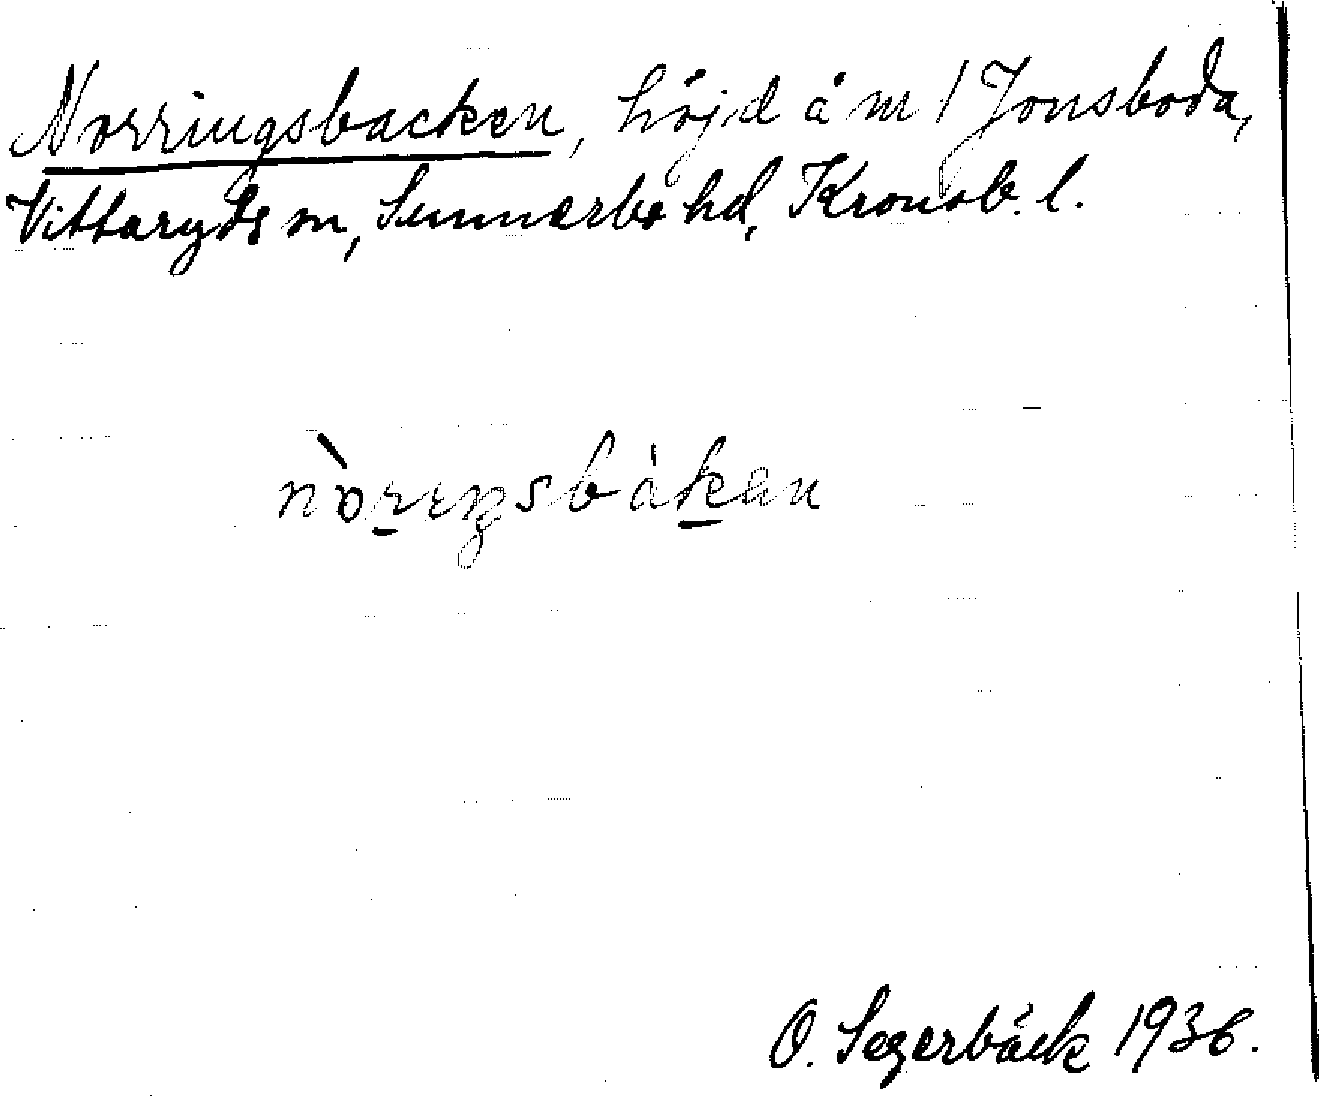 Norringsbacken, höjd å m / Jonsboda,
Vittaryds sn, Sunnerbo hd, Kronob. l.
nòrıŋsbákan
O. Segerbäck 1936.